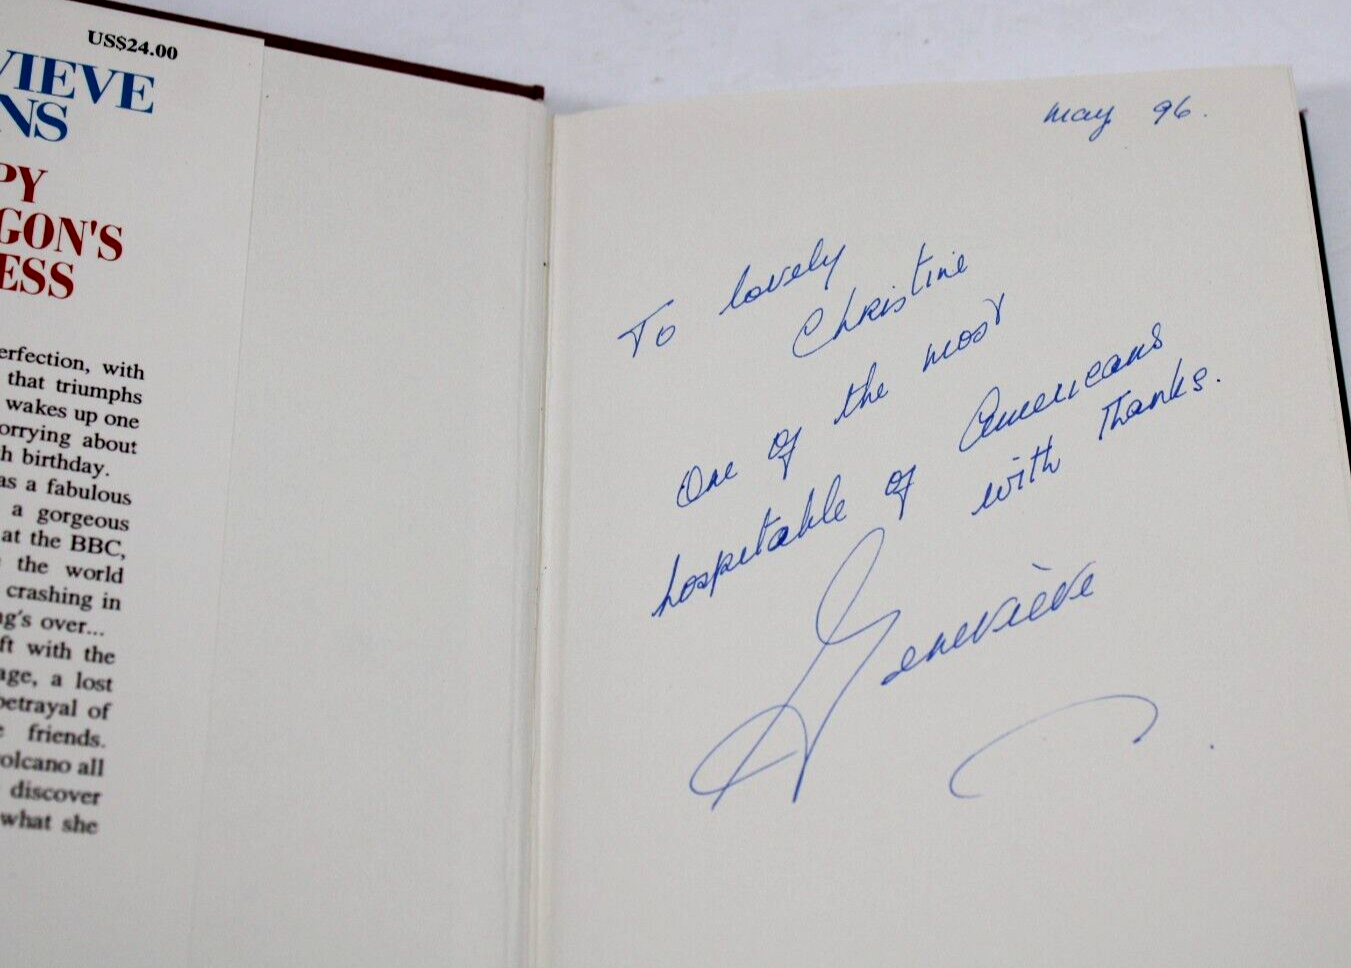 US$24.00
VIEVE
NS
PY
GON'S
ESS
erfection, with
that triumphs
wakes up one
orrying about
h birthday.
as a fabulous
a gorgeous
at the BBC,
the world
crashing in
g's over...
ft with the
age, a lost
betrayal of
friends.
olcano all
discover
what she
May 96.
To lovely
Christine
One of the most
hospitable of Americans
with thanks.
Genevière